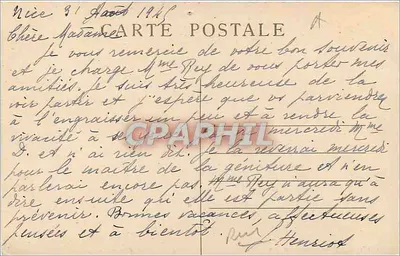 Nice 31 Août 1945
CARTE POSTALE
Chère Madame
Je vous remercie de votre bon souvenir
et je charge Mme Rey de vous porter mes
amitiés. Je suis très heureuse de la
voir partir et j'espère que vs parviendrez
à l'engraisser un peu et à rendre la
vivacité à mercredi Mme
D. et n'ai rien dit. Je la reverrai mercredi
pour le maître de la géniture et n'en
parlerai encore pas. Mme Rey n'aura qu'à
dire ensuite qu'elle est partie sans
prévenir. Bonnes vacances, affectueuses
pensées et à bientôt.
Henriot
CPAPHIL.COM